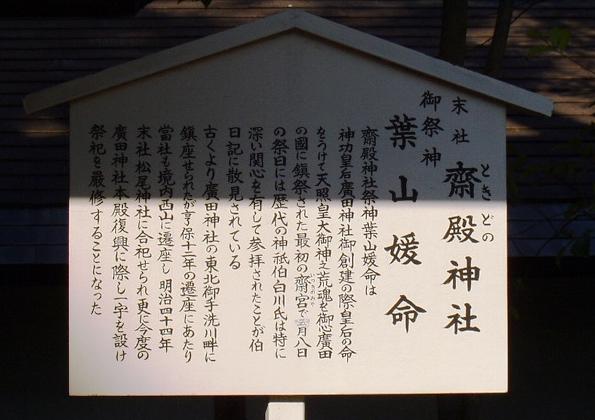 末社 齋殿神社
ときどの
御祭神 葉山媛命
齋殿神社祭神葉山媛命は
神功皇后廣田神社御創建の際皇后の命
をうけて天照皇大御神之荒魂を御心廣田
の國に鎮祭された最初の齋宮で 月八日
いつきのみや
の祭日には歴代の神祇伯白川氏は特に
深い関心を有して参拝されたことが伯
日記に散見されている
古くより廣田神社の東北御手洗川畔に
鎮座せられたが享保十二年の遷座にあたり
當社も境内西山に遷座し明治四十四年
末社松尾神社に合祀せられ更に今度の
廣田神社本殿復興に際し一宇を設け
祭祀を厳修することになった